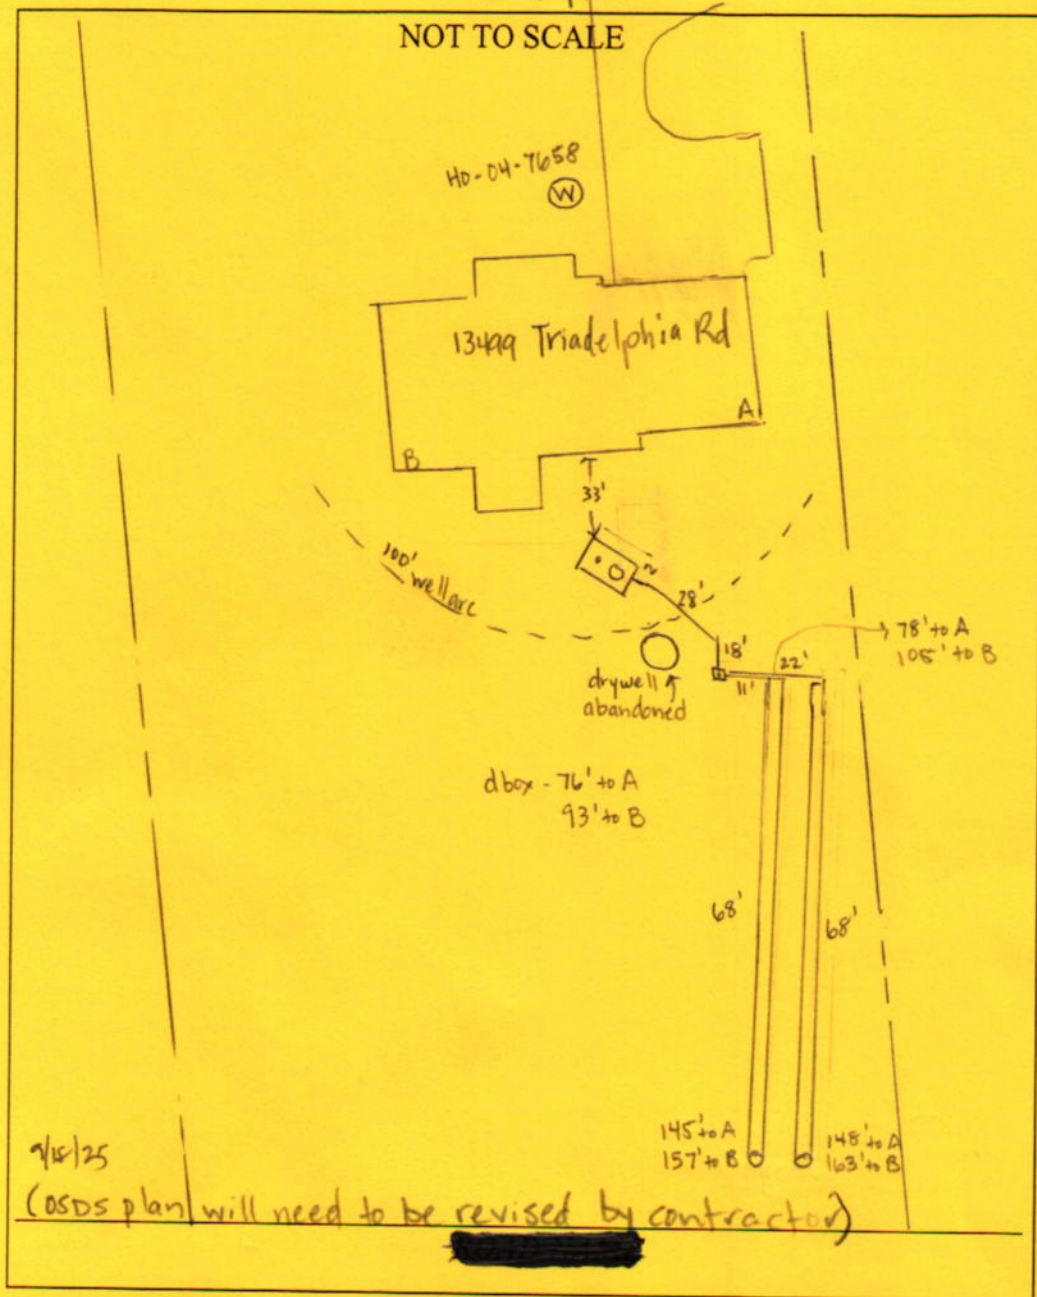 NOT TO SCALE
HO-04-7658
W
13499 Triadelphia Rd
A
B
33'
100' well arc
2
28'
78' to A
105' to B
18'
22'
11'
drywell
abandoned
dbox - 76' to A
93' to B
68'
68'
145' to A
157' to B
148' to A
163' to B
9/15/25
(OSDS plan will need to be revised by contractor)